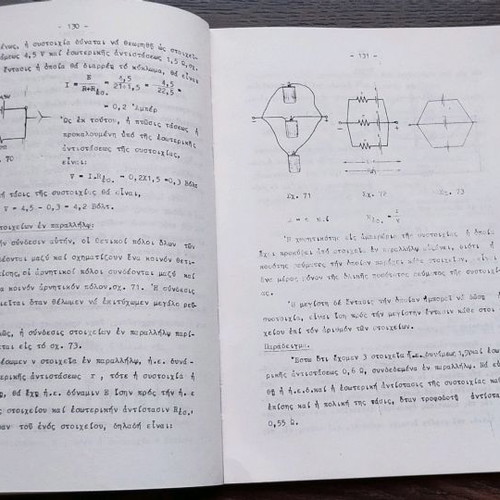 - 130 -
ἡ συστοιχία δύναται νά θεωρηθῇ ὡς στοιχεῖ-
4,5 V καί ἐσωτερικῆς ἀντιστάσεως 1,5 Ω,
ἔντασις ἡ ὁποία θά διαρρέῃ τό κύκλωμα, θά εἶναι
I = E / R+Rἐσ. = 4,5 / 21+1,5 = 4,5 / 22,5 =
= 0,2 Ἀμπέρ
Ὡς ἐκ τούτου, ἡ πτῶσις τάσεως ἡ
προκαλουμένη ὑπό τῆς ἐσωτερικῆς
ἀντιστάσεως τῆς συστοιχίας,
εἶναι:
70
V = I.Rἐσ. = 0,2X1,5 =0,3 Βόλτ
τάσις τῆς συστοιχίας θά εἶναι,
V = 4,5 - 0,3 = 4,2 Βόλτ.
στοιχείων ἐν παραλλήλῳ:
σύνδεσιν αὐτήν, οἱ θετικοί πόλοι ὅλων τῶν
μαζύ καί σχηματίζουν ἕνα κοινόν θετι-
οἱ ἀρνητικοί πόλοι συνδέονται μαζύ καί
κοινόν ἀρνητικόν πόλον, σχ. 71. Ἡ σύνδεσις
ὅταν θέλωμεν νά ἐπιτύχωμεν μεγάλο ρεῦ-
ἡ σύνδεσις στοιχείων ἐν παραλλήλῳ παρί-
εἰς τό σχ. 73.
ν στοιχεῖα ἐν παραλλήλῳ, ἠ.ε. δυνά-
ἀντιστάσεως r , τότε ἡ συστοιχία ἡ
θά ἔχῃ ἠ.ε. δύναμιν E ἴσην πρός τήν ἠ.ε
στοιχείου καί ἐσωτερικήν ἀντίστασιν Rἐσ.
τοῦ ἑνός στοιχείου, δηλαδή εἶναι:
- 131 -
Σχ. 71
Σχ. 72
Σχ. 73
Ἡ χωρητικότης εἰς ἀμπερώρια τῆς συστοιχίας ἡ ὁποί-
προκύψει ἀπό στοιχεῖα ἐν παραλλήλῳ αὐξάνει, διότι ἡ
ποσότης ρεύματος τήν ὁποίαν παρέχει κάθε στοιχεῖον, εἶναι
ἕνα μέρος μόνον τῆς ὁλικῆς ποσότητος ρεύματος τῆς συστοιχί-
ας.
Ἡ μεγίστη δέ ἔντασις τήν ὁποίαν ἠμπορεῖ νά δώσῃ ἡ
συστοιχία, εἶναι ἴση πρός τήν μεγίστην ἔντασιν κάθε στοι-
χείου ἐπί τόν ἀριθμόν τῶν στοιχείων.
Παράδειγμα.
Ἔστω ὅτι ἔχομεν 3 στοιχεῖα ἠ.ε. δυνάμεως καί ἐσω-
ρικῆς ἀντιστάσεως 0,6 Ω, συνδεδεμένα ἐν παραλλήλῳ. Νά εὑ-
θῇ ἡ ἠ.ε.δ. καί ἡ ἐσωτερική ἀντίστασις τῆς συστοιχίας καί
ἐπίσης καί ἡ πολική της τάσις, ὅταν τροφοδοτῇ
0,55 Ω.